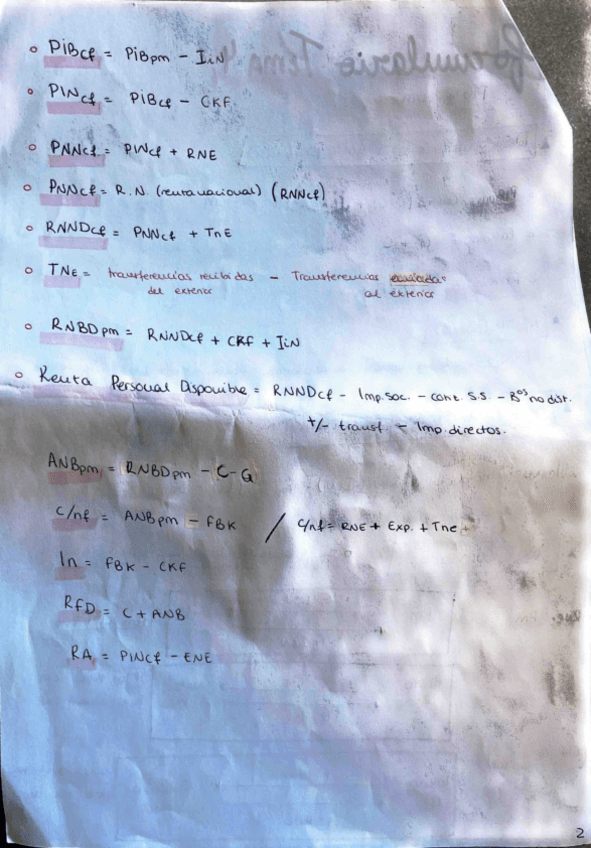 PiBcf = PiBpm - IiN
PINcf = PiBcf - CKF
PNNcf = PINcf + RNE
PNNcf = R.N. (renta nacional) (RNNcf)
RNNDcf = PNNcf + TnE
TNE = transferencias recibidas - Transferencias enviadas
del exterior al exterior
RNBDpm = RNNDcf + CKF + IiN
Renta Personal Disponible = RNNDcf - Imp.soc. - cont. S.S. - Bºs no dist.
+/- transf. - Imp.directos.
ANBpm = RNBDpm - C - G
C/nf = ANBpm - FBK / C/nf = RNE + Exp. + Tne
In = FBK - CKF
RFD = C + ANB
RA = PINcf - ENE
2
Formulario Tema